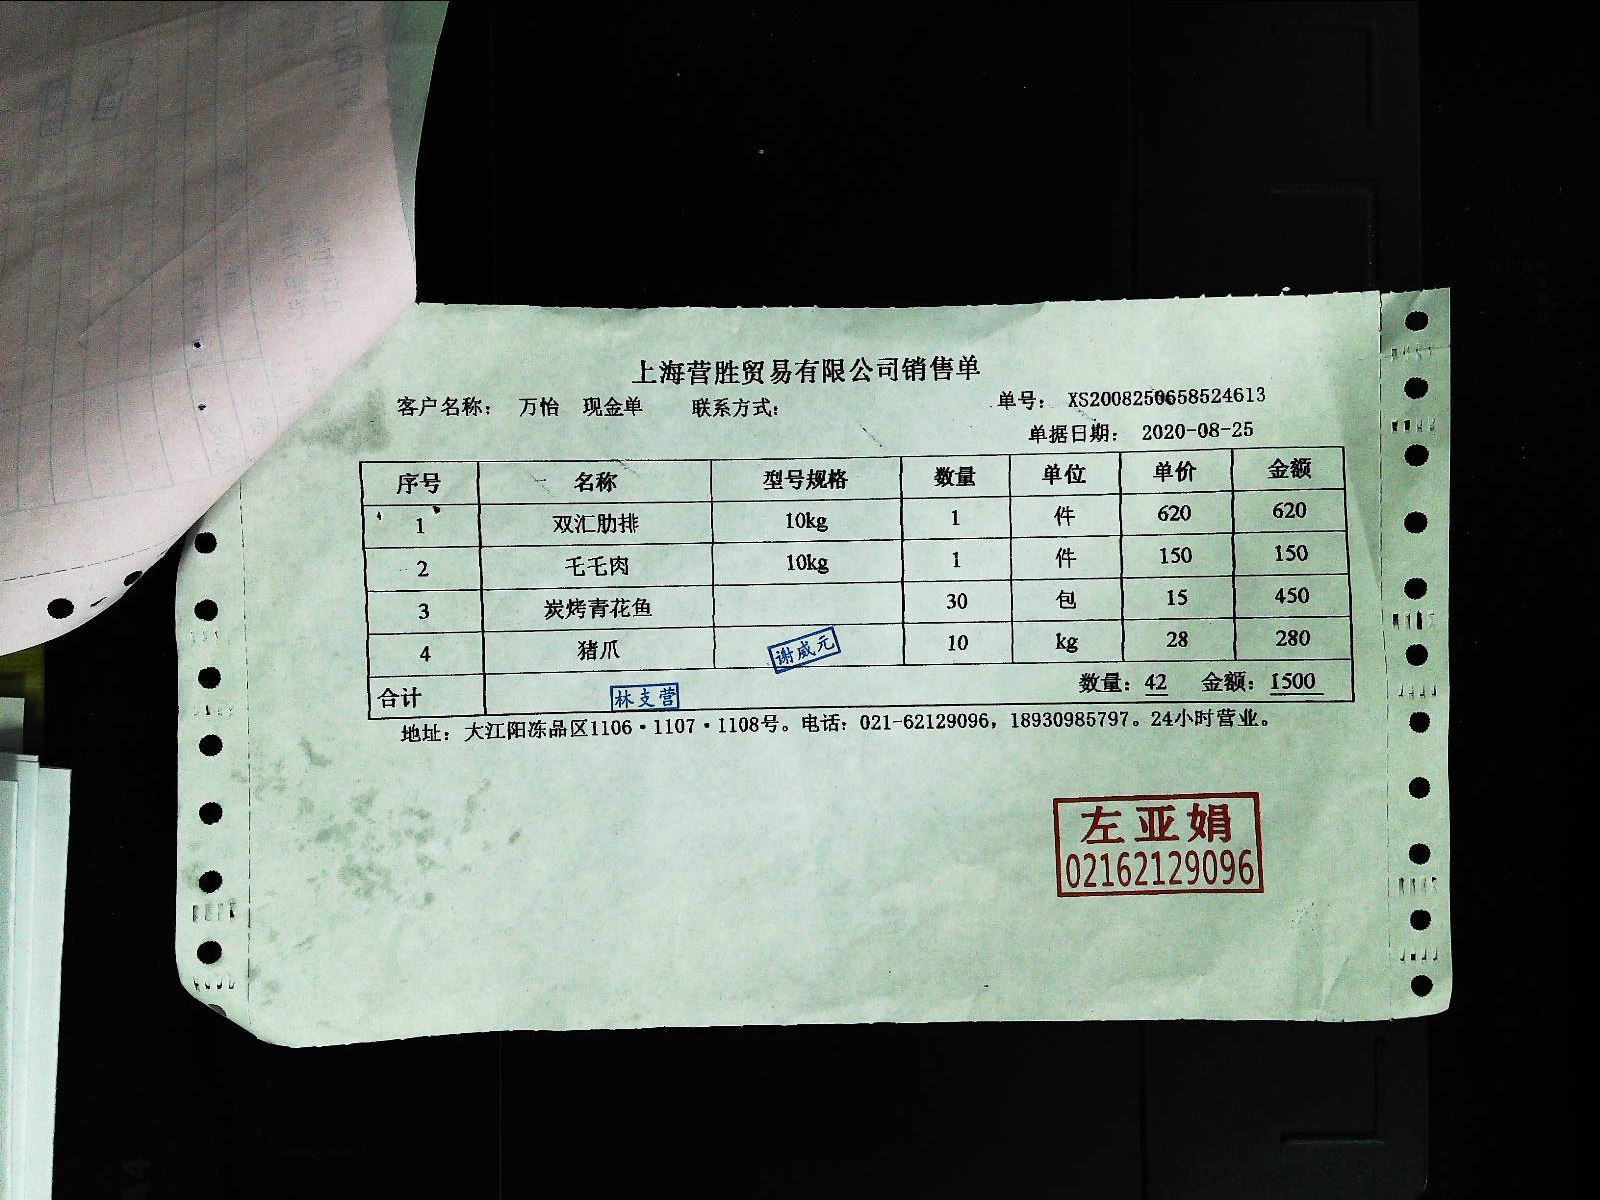 上海营胜贸易有限公司销售单
客户名称： 万怡 现金单 联系方式： 单号： XS2008250658524613
单据日期： 2020-08-25
序号 名称 型号规格 数量 单位 单价 金额
1 双汇肋排 10kg 1 件 620 620
2 毛毛肉 10kg 1 件 150 150
3 炭烤青花鱼 30 包 15 450
4 猪爪 10 kg 28 280
谢威元
合计 数量：42 金额：1500
林支营
地址：大江阳冻品区1106·1107·1108号。电话：021-62129096，18930985797。24小时营业。
左亚娟
02162129096